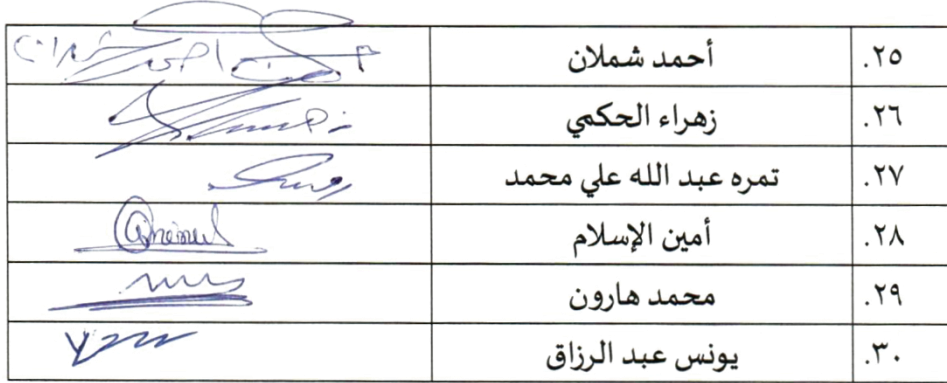 ٢٥. أحمد شملان
٢٦. زهراء الحكمي
٢٧. تمره عبد الله علي محمد
٢٨. أمين الإسلام
٢٩. محمد هارون
٣٠. يونس عبد الرزاق